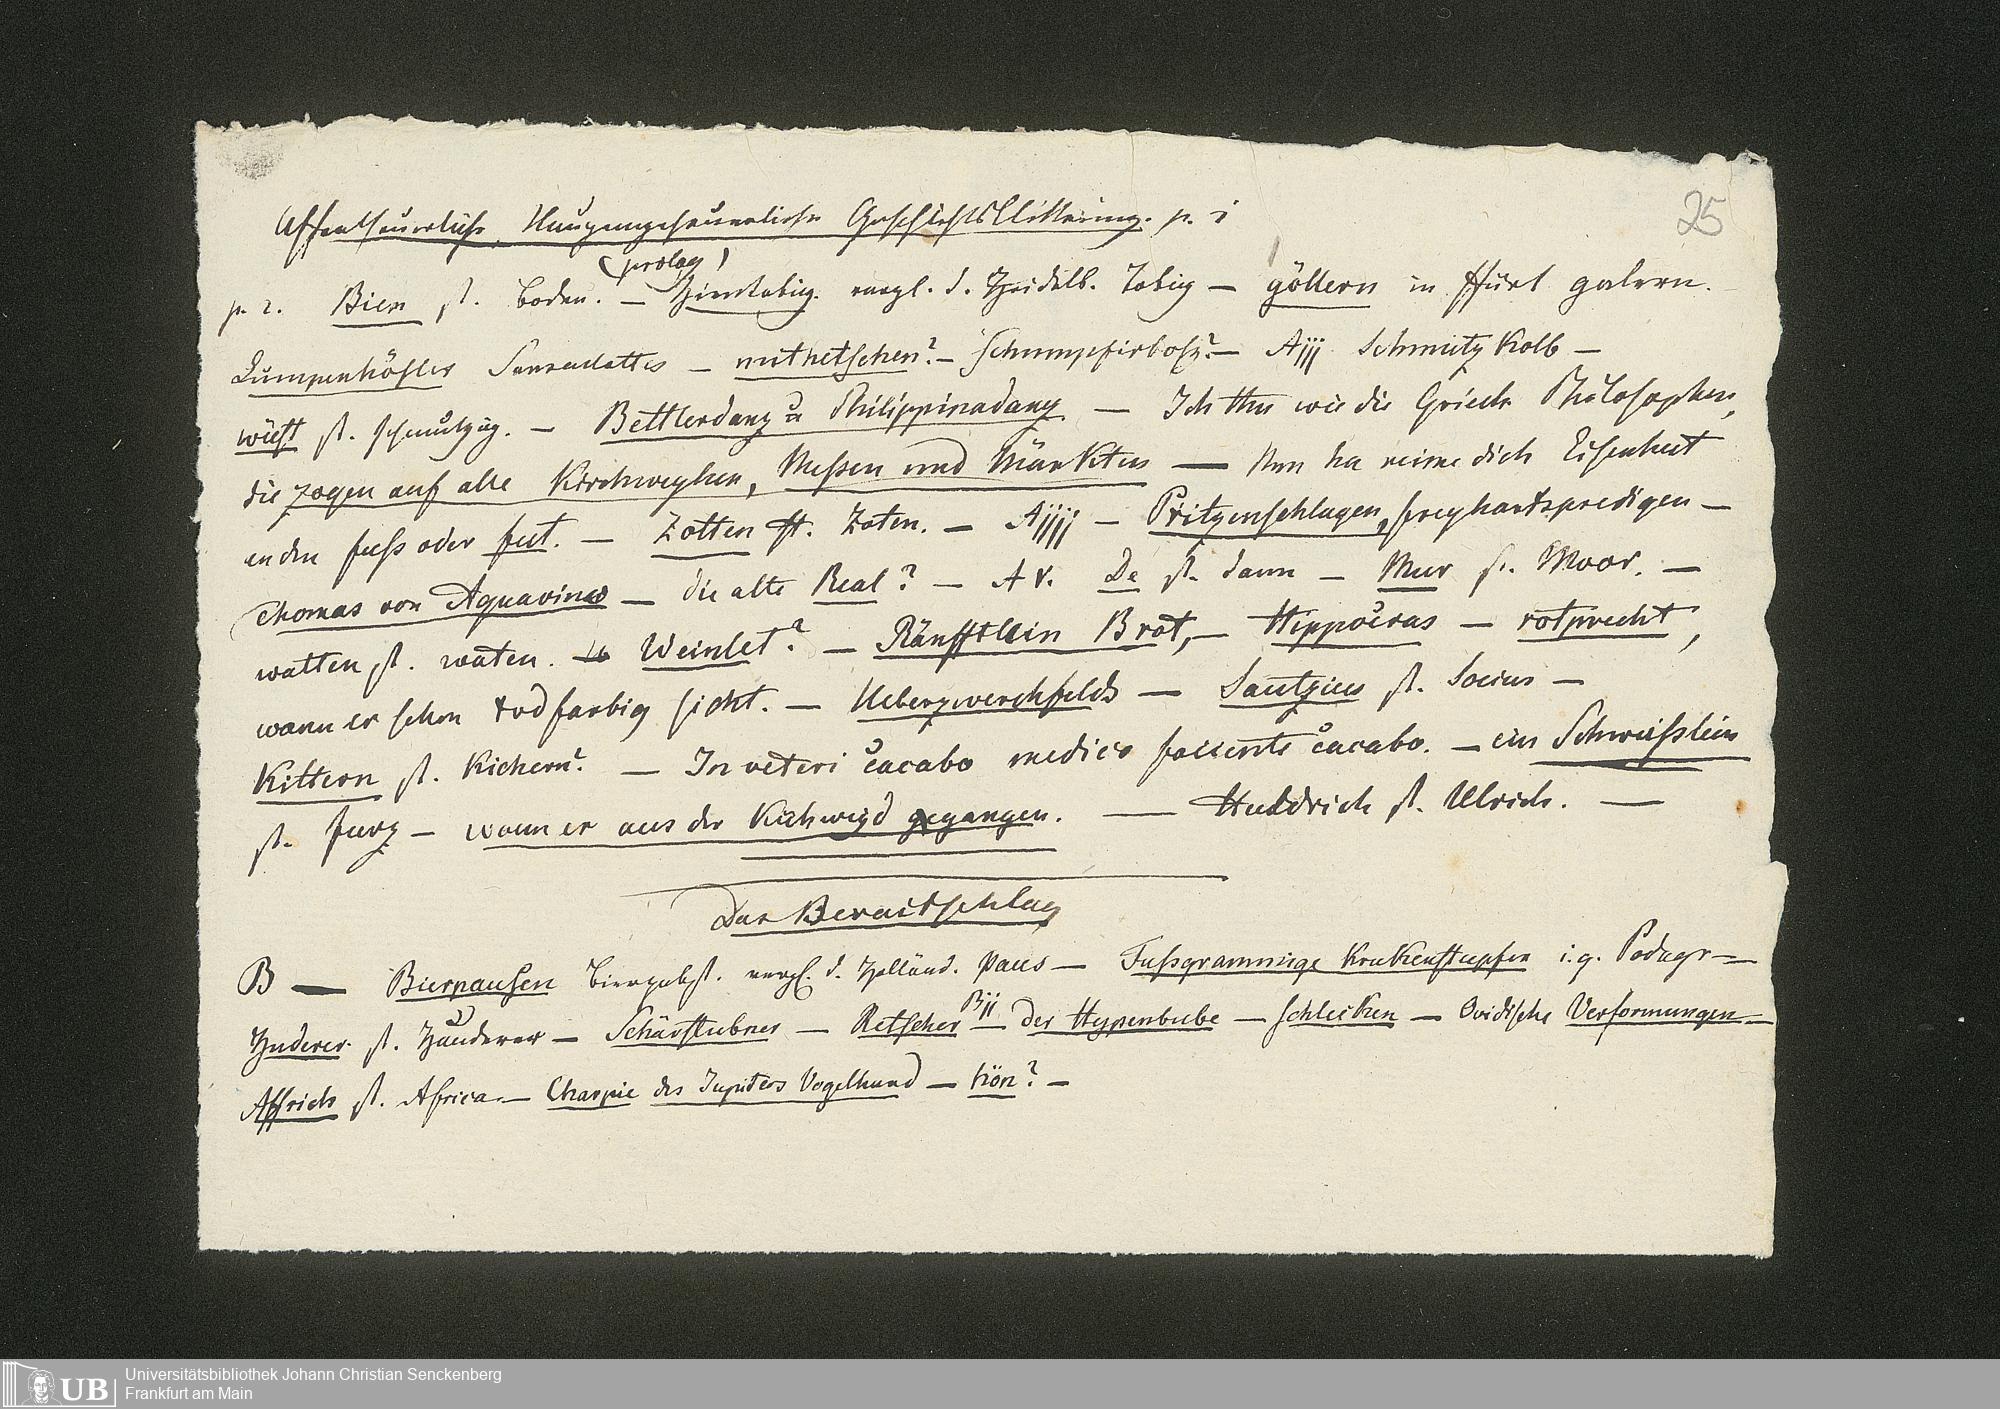 Affentheurliche, Naupengeheurliche Geschichtsklitterung. p. i
25
(prolog)
p. 2. Bien st. Boden. — Hirntobig. vergl. d. Heidelb. Tobig — göllern in Fürt golern.
Lumpenhösler Sansculottes — muthetschen? — Schumpfirbosz? — Ajjj Schmutzkolb —
wüest st. schmutzig. — Bettlerdanz u Philippinadanz — Ich thu wie die Griech Philosophen,
die zogen auf alle Kirchweyhen, Messen und Märkten — Nun ha reime dich Eisenhut
an den fuss oder fut. — Zotten st. Zoten. — Ajjjj — Pritzenschlagen, freyhartspredigen —
Thomas von Aquavino — die alte Real? — A v. De st. dann — Mur st. Moor. —
watten st. waten. — Weinlet? — Ränfftlein Brot, — Hippocras — rotprecht,
wann er schon todfarbig sicht. — Ueberzwerchfelds — Sautzius st. Socius —
Kittern st. Kichern? — In veteri cacabo medico faciente cacabo. — ein Schweisslein
st. furz — wann er aus der Kichweyd gegangen. — Huldrich st. Ulrich. —
Das Beraitschlag
B — Bierpausen Bierpabst. vergl. d. Holländ. Paus — Fussgrammige Krukenstupfer i.q. Podagr —
Huderer st. Hauderer — Schärstubner — Retscher Bjj — der Hypenbube — schleiken — Ovidische Verformungen —
Affrich st. Africa. — Charpie des Jupiters Vogelhund — kön? —
Universitätsbibliothek Johann Christian Senckenberg
Frankfurt am Main
UB